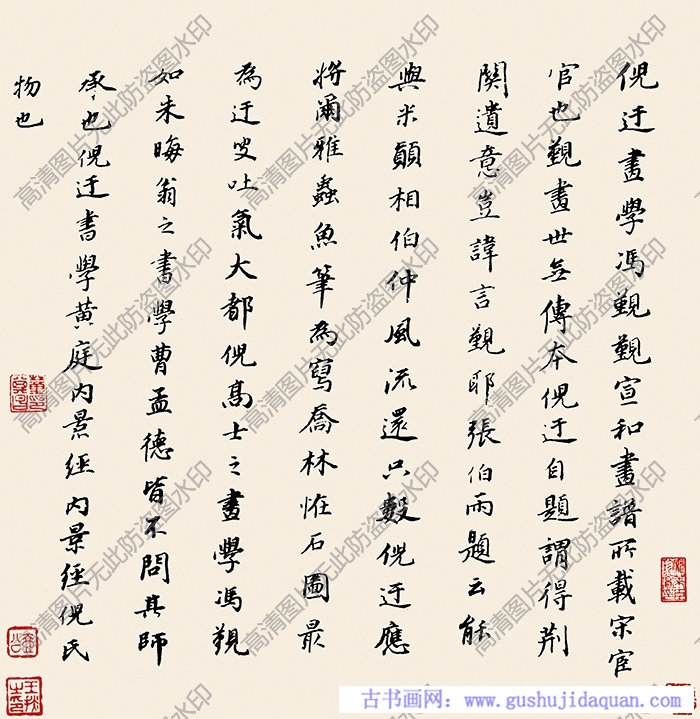 倪迂畫學馮覲覲宣和畫譜所載宋宦
官也覲畫世無傳本倪迂自題謂得荆
關遺意豈諱言覲耶張伯雨題云能
與米顛相伯仲風流還只數倪迂應
将爾雅蟲魚筆為寫喬林恠石圖最
為迂叟吐氣大都倪髙士之畫學馮覲
如朱晦翁之書學曹孟德皆不問其師
承也倪迂書學黄庭内景經内景經倪氏
物也
高清图片无此防盗图水印
古书画网：www.gushujidaquan.com